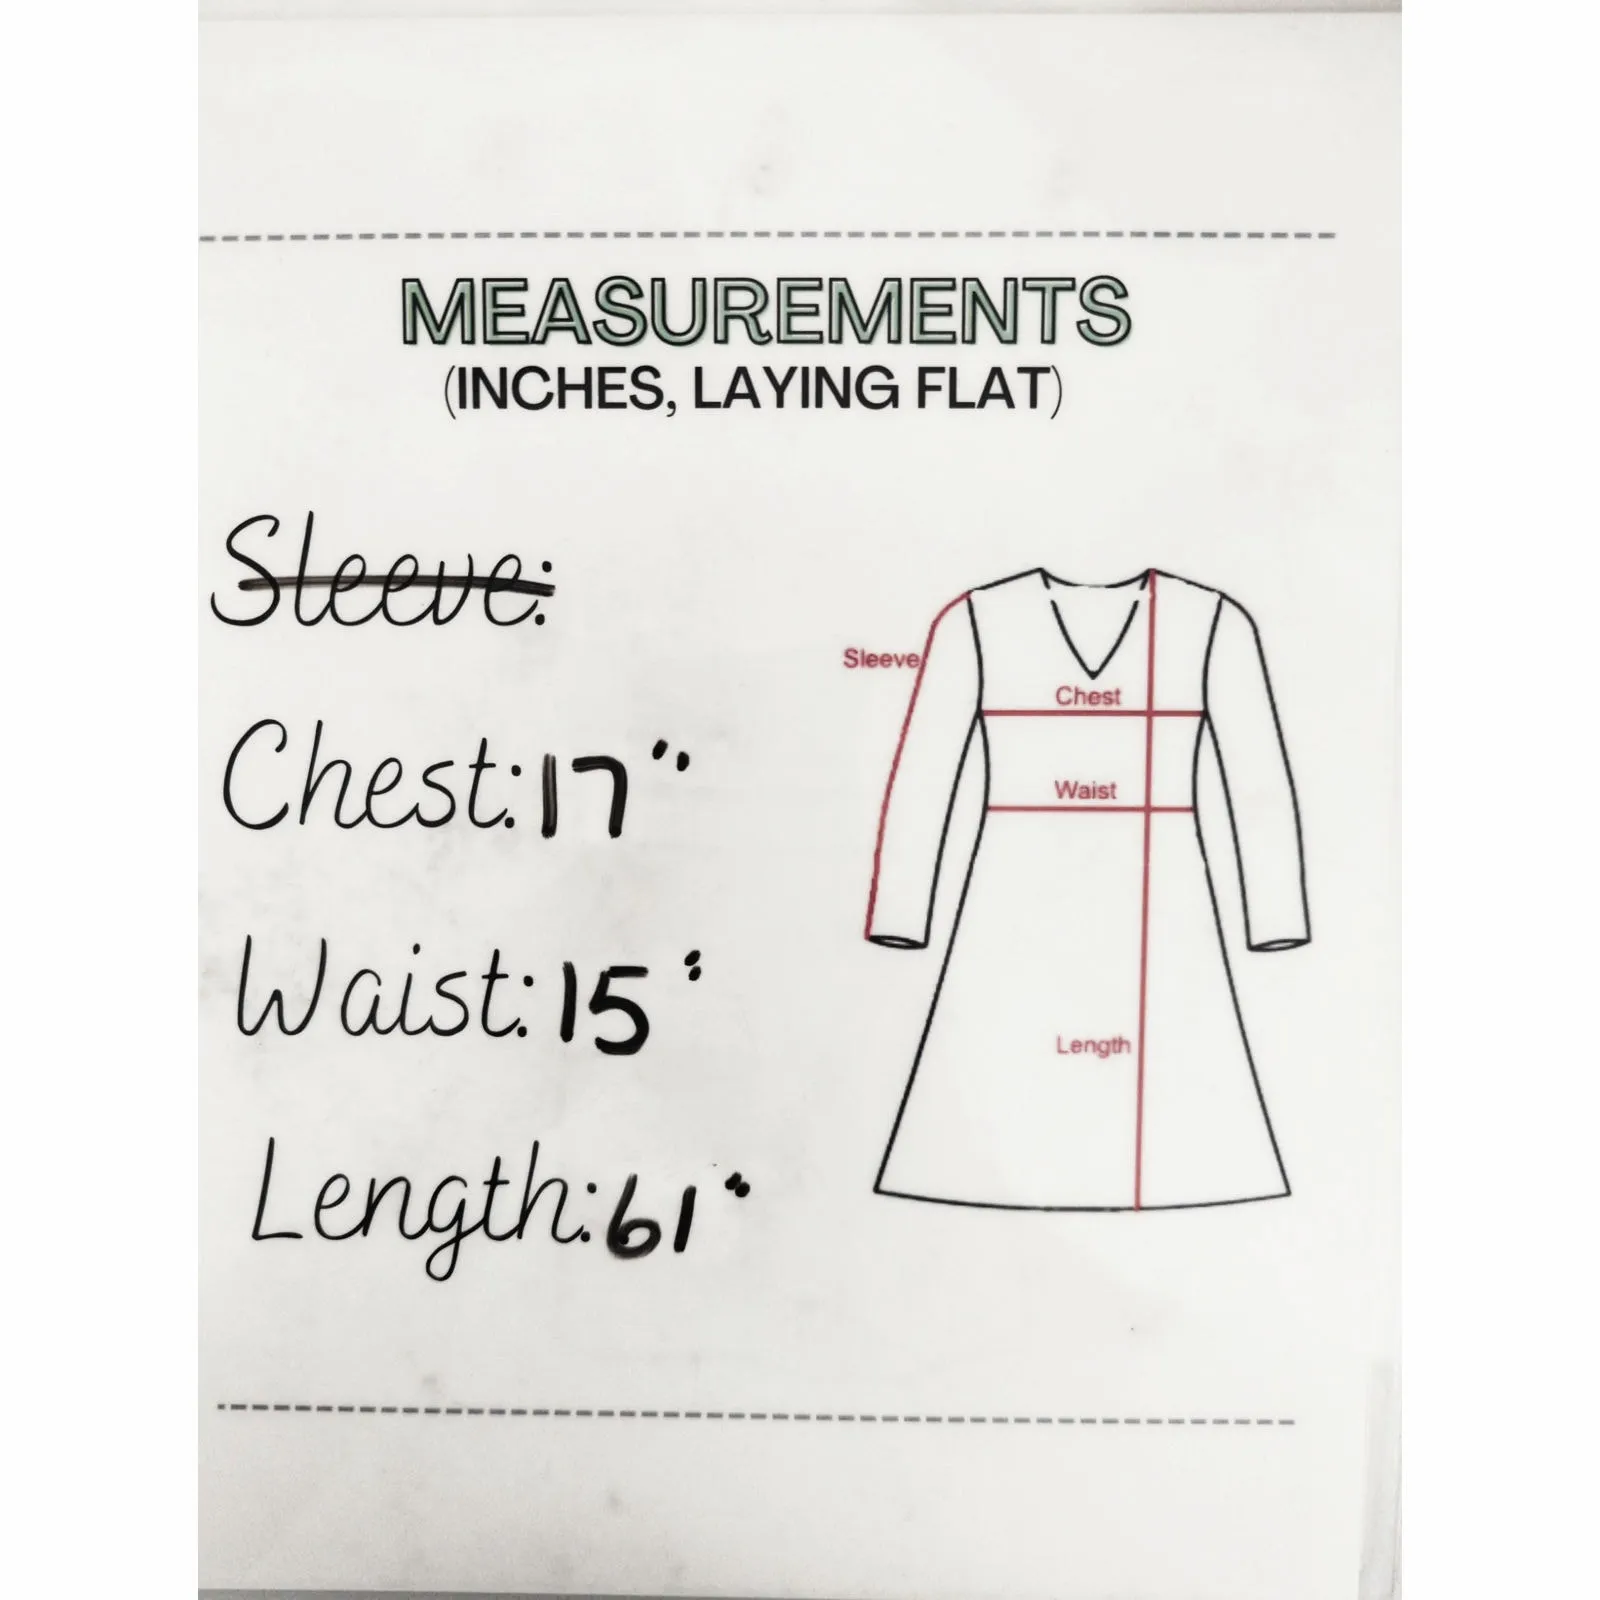 MEASUREMENTS
(INCHES, LAYING FLAT)
Sleeve:
Chest: 17"
Waist: 15"
Length: 61"
Sleeve
Chest
Waist
Length